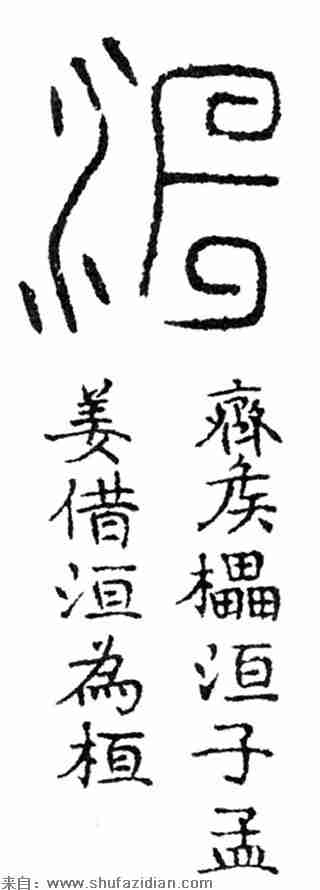 洹
齊矦櫑洹子孟
姜借洹為桓
来自：www.shufazidian.com